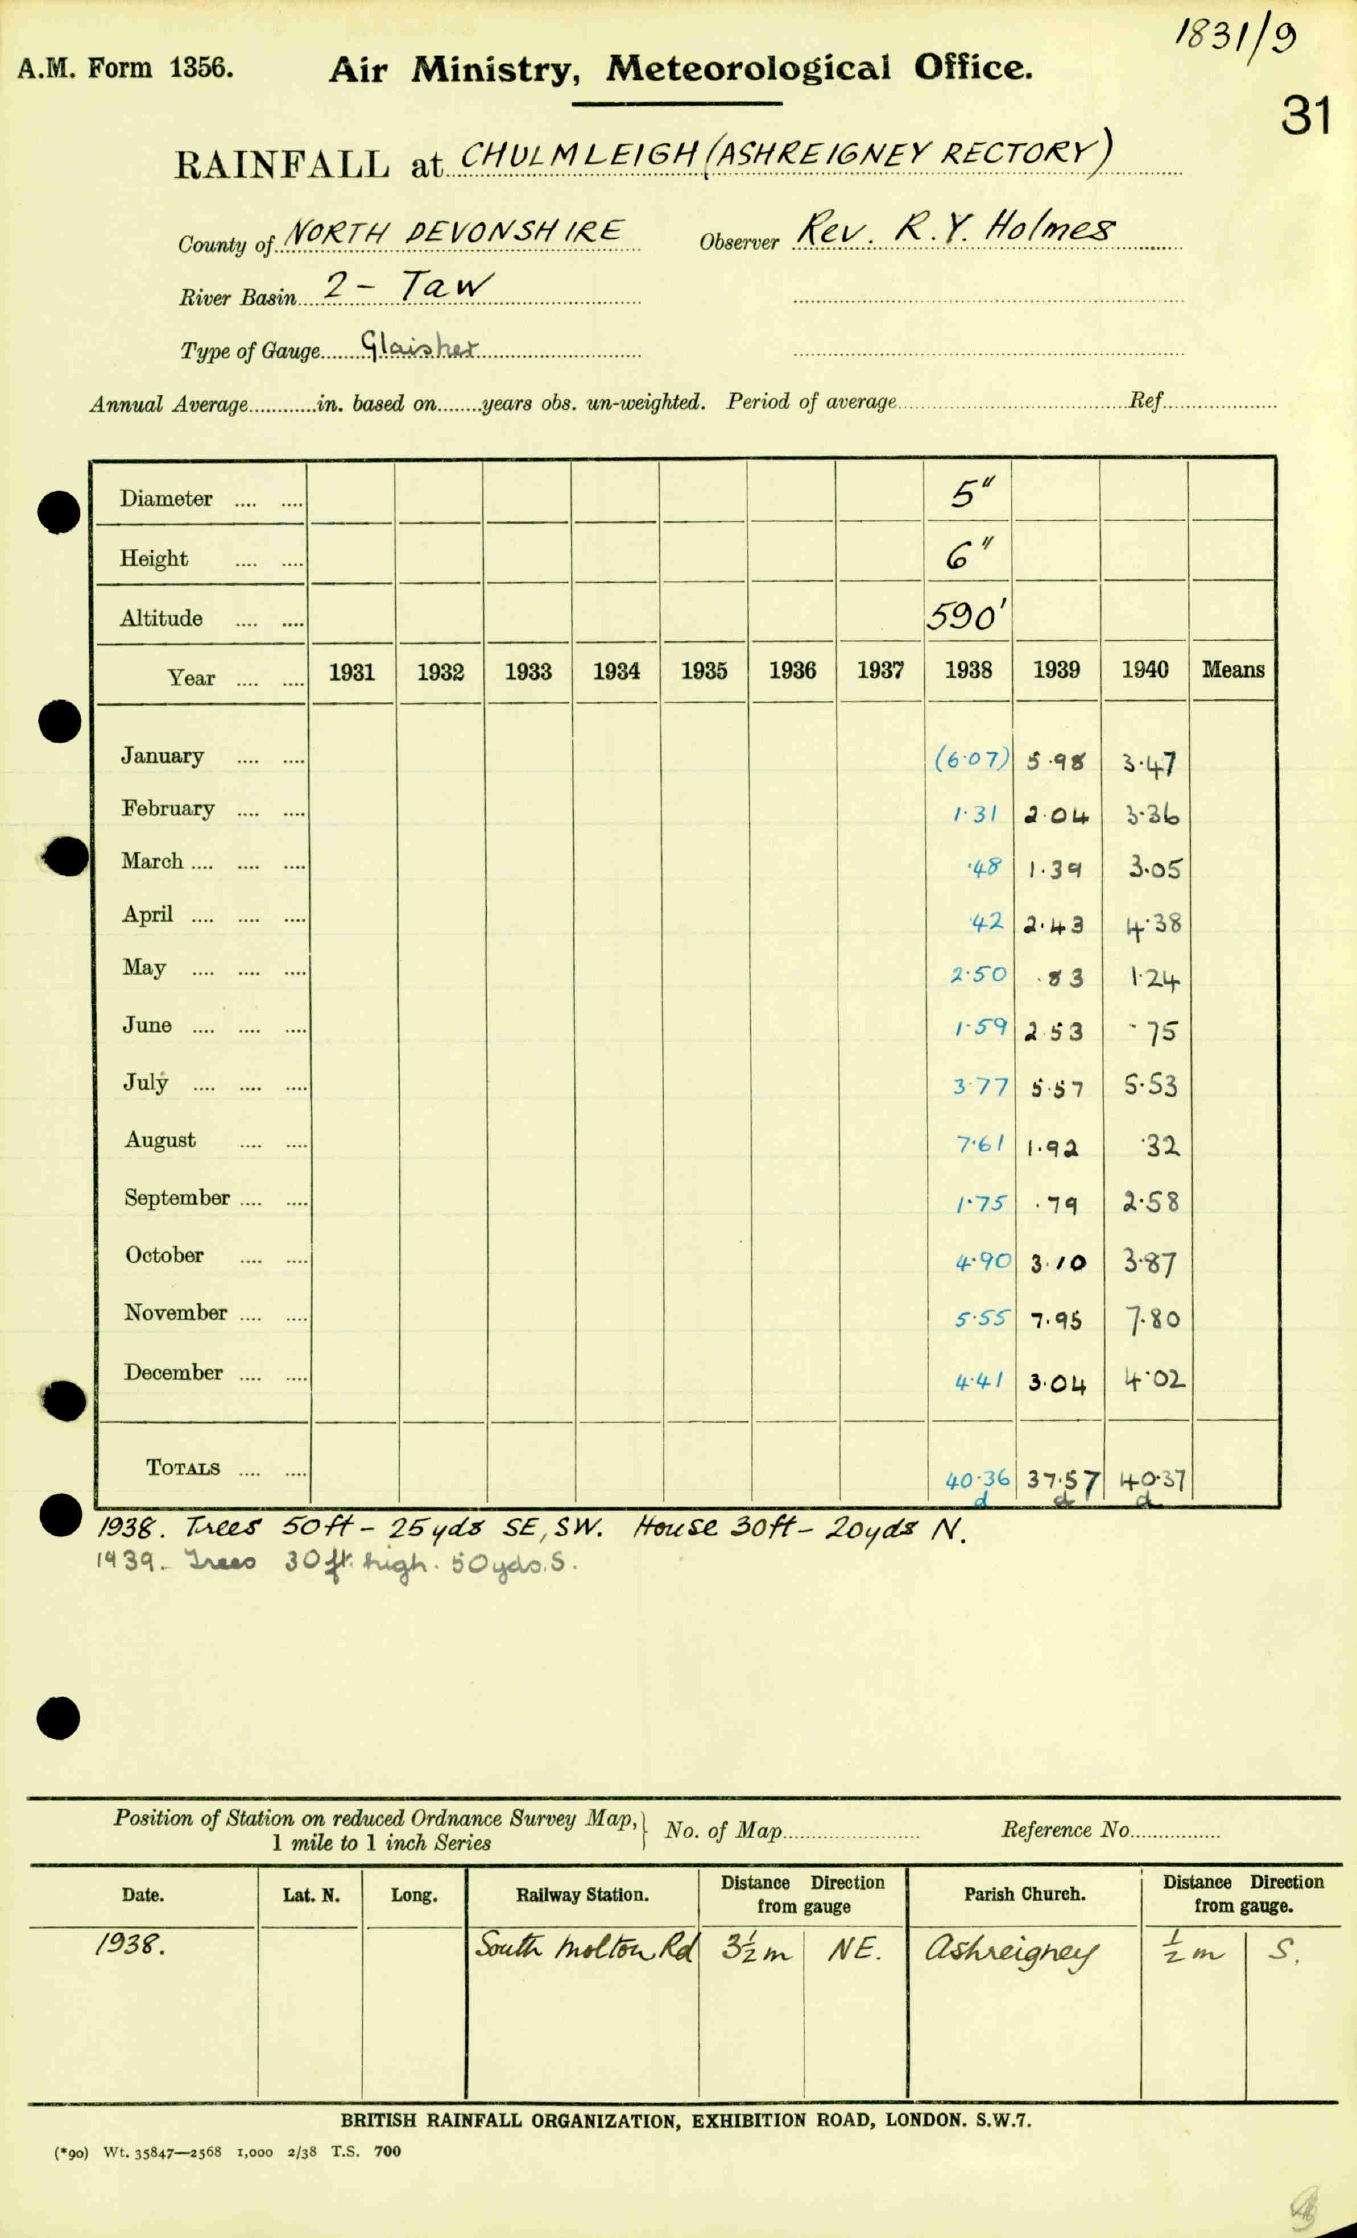 1831/9
A.M. Form 1356. Air Ministry, Meteorological Office.
31
RAINFALL at CHULMLEIGH (ASHREIGNEY RECTORY)
County of NORTH DEVONSHIRE Observer Rev. R. Y. Holmes
River Basin 2 - Taw
Type of Gauge Glaisher
Annual Average............in. based on........years obs. un-weighted. Period of average............Ref............
Diameter .... .... 5"
Height .... .... 6"
Altitude .... .... 590'
Year .... .... 1931 1932 1933 1934 1935 1936 1937 1938 1939 1940 Means
January .... .... (6·07) 5·98 3·47
February .... .... 1·31 2·04 3·36
March .... .... .... ·48 1·39 3·05
April .... .... .... ·42 2·43 4·38
May .... .... .... 2·50 ·83 1·24
June .... .... .... 1·59 2·53 ·75
July .... .... .... 3·77 5·57 5·53
August .... .... 7·61 1·92 ·32
September .... .... 1·75 ·79 2·58
October .... .... 4·90 3·10 3·87
November .... .... 5·55 7·95 7·80
December .... .... 4·41 3·04 4·02
TOTALS .... .... 40·36 37·57 40·37
d d d
1938. Trees 50ft - 25yds SE, SW. House 30ft - 20yds N.
1939. Trees 30ft. high. 50yds. S.
Position of Station on reduced Ordnance Survey Map, 1 mile to 1 inch Series } No. of Map............ Reference No............
Date. Lat. N. Long. Railway Station. Distance Direction from gauge Parish Church. Distance Direction from gauge.
1938. South Molton Rd 3½ m NE. Ashreigney ½ m S.
BRITISH RAINFALL ORGANIZATION, EXHIBITION ROAD, LONDON. S.W.7.
(*90) Wt. 35847—2568 1,000 2/38 T.S. 700